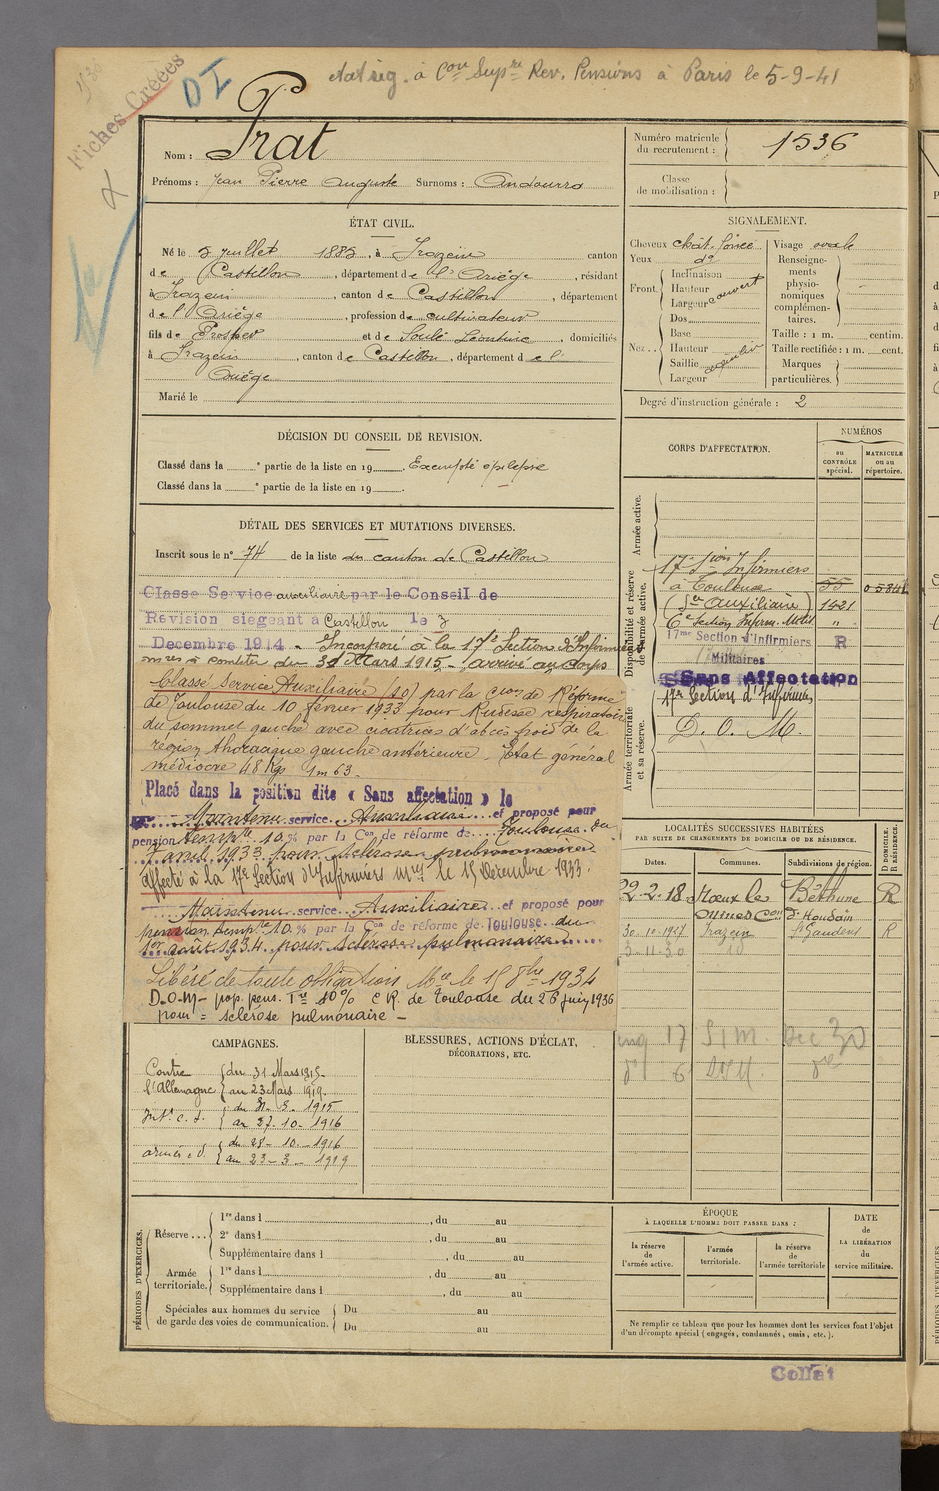 Etat sig. à Con Supre Rev. Pensions à Paris le 5-9-41
Fiches Créées
DI
Nom : Prat
Prénoms : Jean Pierre Auguste Surnoms : Andourra
Numéro matricule du recrutement : 1536
Classe de mobilisation :
ÉTAT CIVIL.
Né le 5 juillet 1883, à Irazein canton
de Castillon, département de l'Ariège, résidant
à Irazein, canton de Castillon, département
de l'Ariège, profession de cultivateur
fils de Prosper et de Soulé Léontine, domiciliés
à Irazein, canton de Castillon, département de l'
Ariège
Marié le
SIGNALEMENT.
Cheveux chât. foncé
Yeux do
Front. Inclinaison
Hauteur couvert
Largeur
Nez.. Dos
Base
Hauteur
Saillie
Largeur
Visage ovale
Renseignements physionomiques complémentaires.
Taille : 1 m. centim.
Taille rectifiée : 1 m. cent.
Marques particulières.
Degré d'instruction générale : 2
DÉCISION DU CONSEIL DE REVISION.
Classé dans la e partie de la liste en 19 . Exempté épilepsie
Classé dans la e partie de la liste en 19 .
DÉTAIL DES SERVICES ET MUTATIONS DIVERSES.
Inscrit sous le no 74 de la liste du canton de Castillon
Classe Service auxiliaire par le Conseil de
Revision siegeant à Castillon le 3
Decembre 1914 - Incorporé à la 17e Section d'Infirmiers
mres à compter du 31 Mars 1915 - arrivé au corps
Classé Service Auxiliaire (10) par la Con de Réforme
de Toulouse du 10 février 1933 pour Rudesse respiratoire
du sommet gauche avec cicatrices d'abcès froid de la
région thoracique gauche antérieure - Etat général
médiocre 48 Kgs 1m63.
Placé dans la position dite « Sans affectation » le
Maintenu service Auxiliaire et proposé pour
pension tempre 10 % par la Con de réforme de Toulouse du
7 avril 1933 pour sclérose pulmonaire
affecté à la 17e Section d'Infirmiers Mres le 15 Décembre 1933.
Maintenu service Auxiliaire et proposé pour
pension tempre 10 % par la Con de réforme de Toulouse du
1er août 1934 pour sclérose pulmonaire
Libéré de toute obligation Mre le 15 8bre 1934
D.O.M - prop. pens. Tre 10 % C R. de Toulouse du 26 juin 1936
pour = sclérose pulmonaire -
CORPS D'AFFECTATION.
NUMÉROS
au CONTRÔLE spécial.
MATRICULE ou au répertoire.
Armée active.
Disponibilité et réserve de l'armée active.
17e Son Infirmiers
à Toulouse
(Sce Auxiliaire) 1421
6e Section Infirm. Milit. "
17me Section d'Infirmiers R
Militaires
Sans Affectation
Armée territoriale et sa réserve.
17e Section d'Infirmiers
D. O. M.
LOCALITÉS SUCCESSIVES HABITÉES
PAR SUITE DE CHANGEMENTS DE DOMICILE OU DE RÉSIDENCE.
Dates.
Communes.
Subdivisions de région.
D. DOMICILE. R. RÉSIDENCE.
22-2-18 Nœux les Béthune R
Mines Con d'Houdain
30-10-1927 Irazein St Gaudens R
3-11-30 id
17 SIM. Déc 30
6
CAMPAGNES.
Contre l'Allemagne { du 31 Mars 1915
au 23 Mars 1919.
Intr c. d. { du 31-3-1915
au 27-10-1916
armées c. d. { du 28-10-1916
au 23-3-1919
BLESSURES, ACTIONS D'ÉCLAT,
DÉCORATIONS, ETC.
PÉRIODES D'EXERCICES.
Réserve ... 1re dans l , du au
2e dans l , du au
Supplémentaire dans l , du au
Armée territoriale. 1re dans l , du au
Supplémentaire dans l , du au
Spéciales aux hommes du service
de garde des voies de communication. Du au
Du au
ÉPOQUE
À LAQUELLE L'HOMME DOIT PASSER DANS :
la réserve de l'armée active.
l'armée territoriale.
la réserve de l'armée territoriale
DATE de LA LIBÉRATION du service militaire.
Ne remplir ce tableau que pour les hommes dont les services font l'objet
d'un décompte spécial (engagés, condamnés, omis, etc.).
Collat